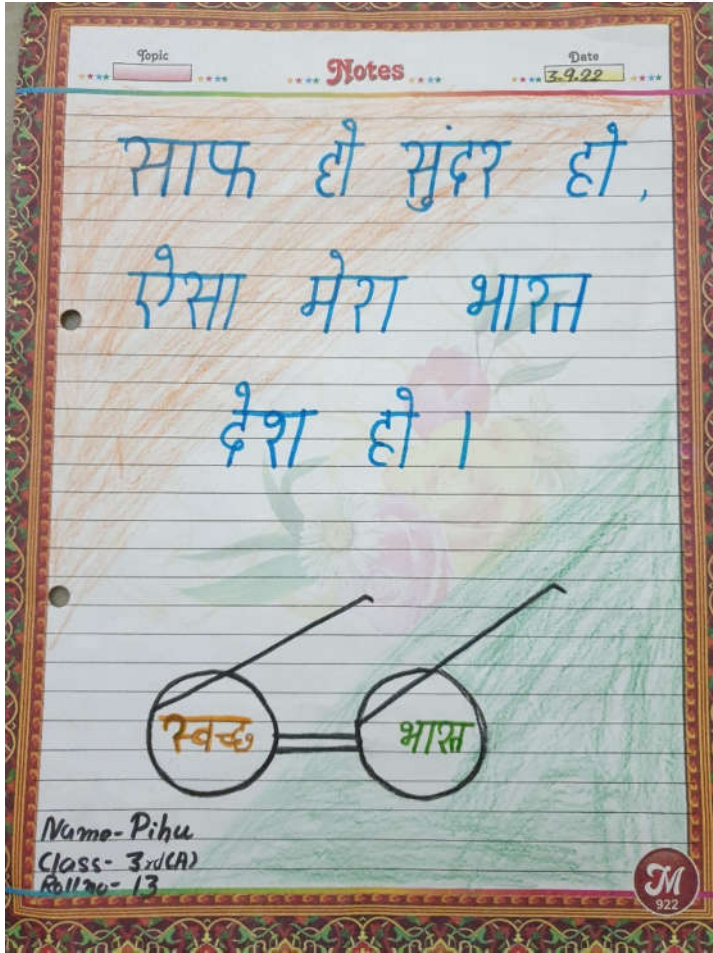 Topic
Notes
Date
3.9.22
साफ हो सुंदर हो,
ऐसा मेरा भारत
देश हो ।
स्वच्छ भारत
Name- Pihu
Class- 3rd(A)
Roll no- 13
M
922